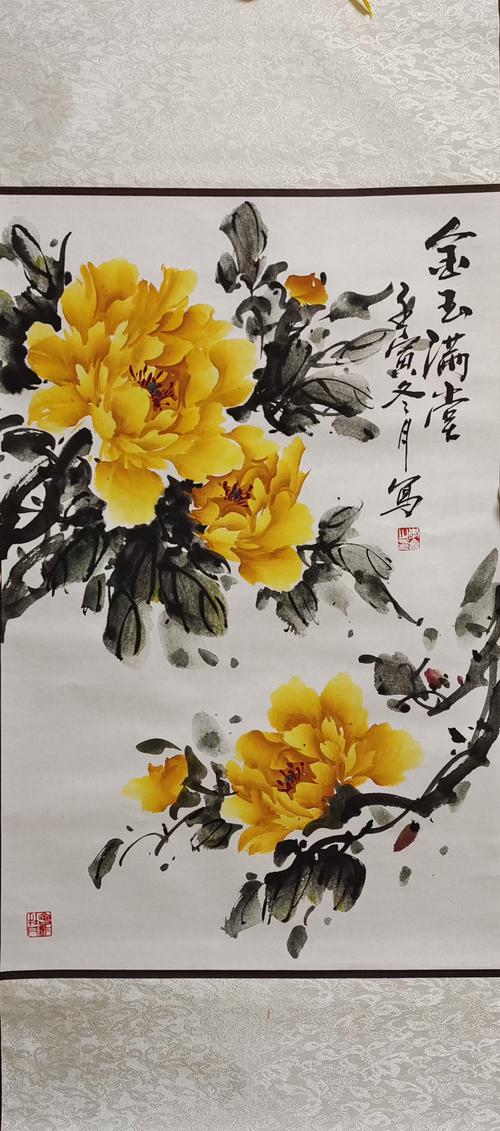 金玉满堂
壬寅冬月
写